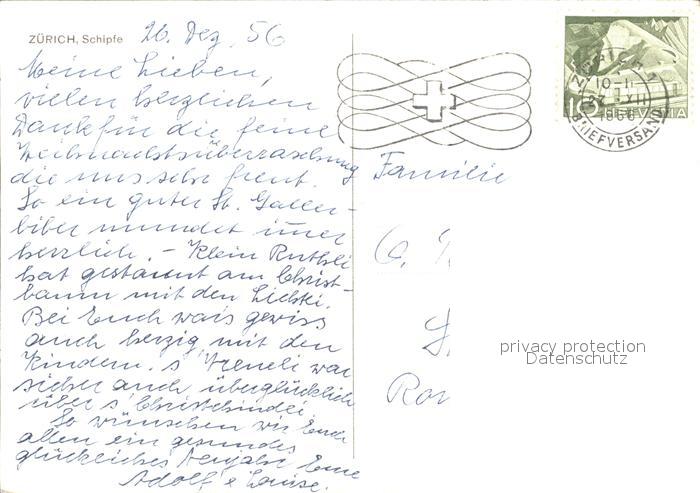 ZÜRICH, Schipfe
26. Dez. 56
Meine Lieben,
vielen herzlichen
Dank für die feine
Weihnachtsüberraschung
die uns sehr freut.
So ein guter St. Galler-
biber mundet immer
herrlich. - Klein Ruthli
hat gestaunt am Christ-
baum mit den Lichtli.
Bei Euch wars gewiss
auch herzig mit den
Kindern. s'Vreneli war
sicher auch überglücklich
über s'Christchindei
So wünschen wir Euch
allen ein gesundes
glückliches Neujahr Eure
Adolf & Louise.
Familie
ZÜRICH 1
1956
BRIEFVERSAND
10
HELVETIA
privacy protection
Datenschutz